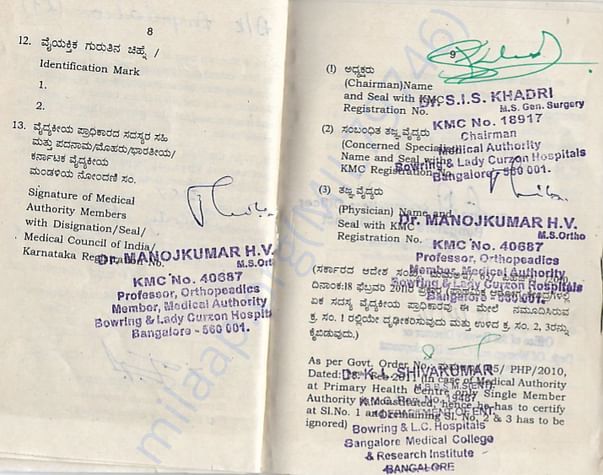 8
12. ವೈಯಕ್ತಿಕ ಗುರುತಿನ ಚಿಹ್ನೆ /
Identification Mark
1.
2.
13. ವೈದ್ಯಕೀಯ ಪ್ರಾಧಿಕಾರದ ಸದಸ್ಯರ ಸಹಿ
ಮತ್ತು ಪದನಾಮ/ಮೊಹರು/ಭಾರತೀಯ/
ಕರ್ನಾಟಕ ವೈದ್ಯಕೀಯ
ಮಂಡಳಿಯ ನೋಂದಣಿ ಸಂ.
Signature of Medical
Authority Members
with Disignation/Seal/
Medical Council of India/
Karnataka Registration No.
Dr. MANOJKUMAR H.V.
M.S.Ortho
KMC No. 40687
Professor, Orthopeadics
Member, Medical Authority
Bowring & Lady Curzon Hospitals
Bangalore - 560 001.
9
(1) ಅಧ್ಯಕ್ಷರು
(Chairman)Name
and Seal with KMC
Registration No.
Dr. S.I.S. KHADRI
M.S. Gen. Surgery
KMC No. 18917
Chairman
Medical Authority
Bowring & Lady Curzon Hospitals
Bangalore- 560 001.
(2) ಸಂಬಂಧಿತ ತಜ್ಞ ವೈದ್ಯರು
(Concerned Specialist)
Name and Seal with
KMC Registration No.
(3) ತಜ್ಞ ವೈದ್ಯರು
(Physician) Name and
Seal with KMC
Registration No.
Dr. MANOJKUMAR H.V.
M.S.Ortho
KMC No. 40687
Professor, Orthopeadics
Member, Medical Authority
Bowring & Lady Curzon Hospitals
Bangalore - 560 001.
(ಸರ್ಕಾರದ ಆದೇಶ ಸಂಖ್ಯೆ
ದಿನಾಂಕ:18 ಫೆಬ್ರವರಿ 2011ರ ಪ್ರಕಾರ
ಏಕ ಸದಸ್ಯ ವೈದ್ಯಕೀಯ ಪ್ರಾಧಿಕಾರವು ಈ ಮೇಲೆ ನಮೂದಿಸಿರುವ
ಕ್ರ. ಸಂ. 1 ರಲ್ಲಿಯೇ ದೃಢೀಕರಿಸುವುದು ಮತ್ತು ಉಳಿದ ಕ್ರ. ಸಂ. 2, 3ರನ್ನು
ಕೈಬಿಡುವುದು.)
As per Govt. Order No. 65/ PHP/2010,
Dated: 18. Feb 2011 (In case of Medical Authority
at Primary Health Centre only Single Member
Authority is constituted, hence he has to certify
at Sl.No. 1 and remaining Sl. No. 2 & 3 has to be
ignored)
Dr. K.L. SHIVAKUMAR
M.B.B.S M.S(ENT)
DEPARTMENT OF ENT
Bowring & L.C. Hospitals
Bangalore Medical College
& Research Institute
BANGALORE